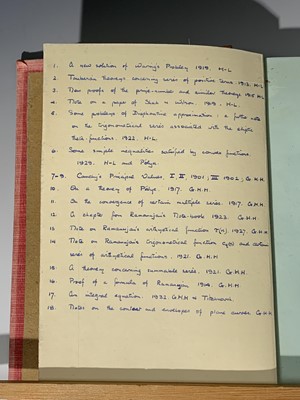 1. A new solution of Waring's Problem 1919. H-L
2. Tauberian theorems concerning series of positive terms. 1913. H-L
3. New proofs of the prime-number and similar theorems 1915 H-L
4. Note on a paper of Shah & Wilson. 1919. H-L.
5. Some problems of Diophantine approximation: a further note
on the trigonometrical series associated with the elliptic
theta functions. 1922. H-L
6. Some simple inequalities satisfied by convex functions
1929. H-L and Pólya.
7-9. Cauchy's Principal Values. I, II, 1901; III 1902; G.H.H
10. On a theorem of Pólya. 1917. G.H.H.
11. On the convergence of certain multiple series. 1917. G.H.H
12. A chapter from Ramanujan's Note-book 1923. G.H.H
13. Note on Ramanujan's arithmetical function τ(n). 1927. G.H.H
14. Note on Ramanujan's trigonometrical function and certain
series of arithmetical functions. 1921. G.H.H
15. A theorem concerning summable series. 1921. G.H.H
16. Proof of a formula of Ramanujan G.H.H.
17. An integral equation. 1932. G.H.H & Titchmarsh.
18. Notes on the content and envelopes of plane curves G.H.H